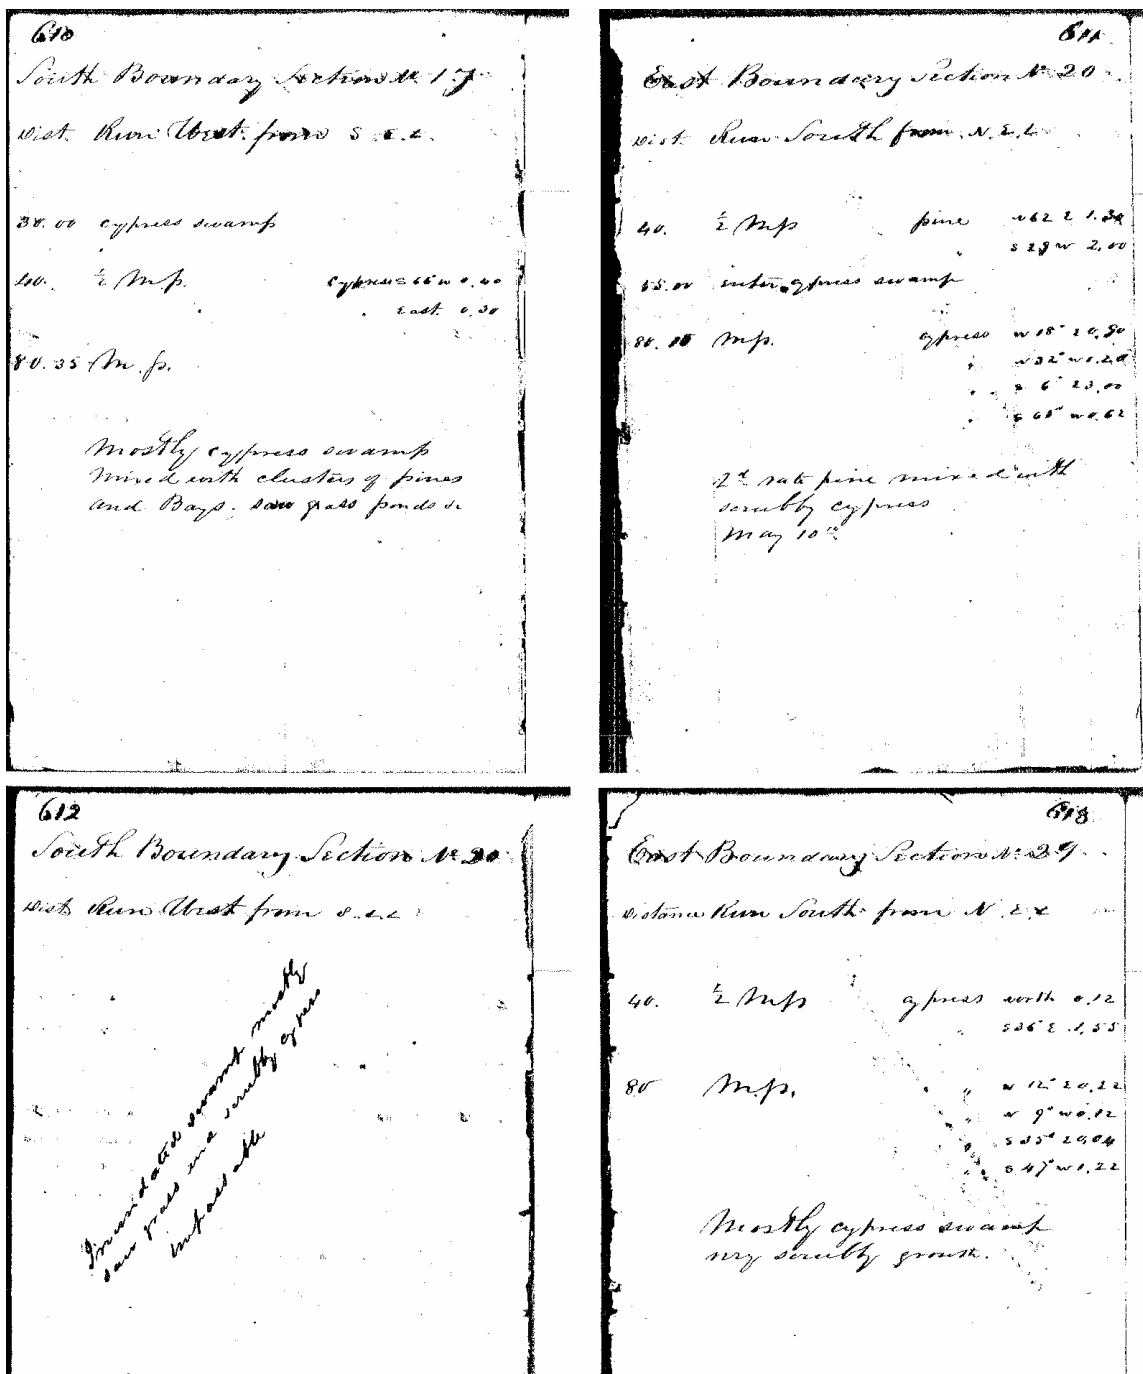 610
South Boundary Section No 17
Dist. Run West from S. E. C.
30.00 cypress swamp
40. ½ M.p. cypress S 66 W 0.40
" East 0.30
80.35 M.p.
Mostly cypress swamp
Mixed with clusters of pines
and Bays. saw grass ponds &c
611
East Boundary Section No 20
Dist. Run South from N. E. C.
40. ½ M.p pine N 62 E 1.30
" S 29 W 2.00
55.00 enter cypress swamp
80.10 M.p. cypress N 18° E 0.80
" N 32° W 0.20
" S 6° E 3.00
" S 65° W 0.62
2d rate pine mixed with
scrubby cypress
May 10th
612
South Boundary Section No 20
Dist. Run West from S. E. C.
Innundated swamp mostly
saw grass and scrubby cypress
impassable
613
East Boundary Section No 29
Distance Run South from N. E. C.
40. ½ M.p cypress North 0.12
" S 36° E 1.55
80 M.p. " N 12° E 0.22
" N 9° W 0.12
" S 35° E 0.04
" S 47° W 0.22
Mostly cypress swamp
very scrubby growth.